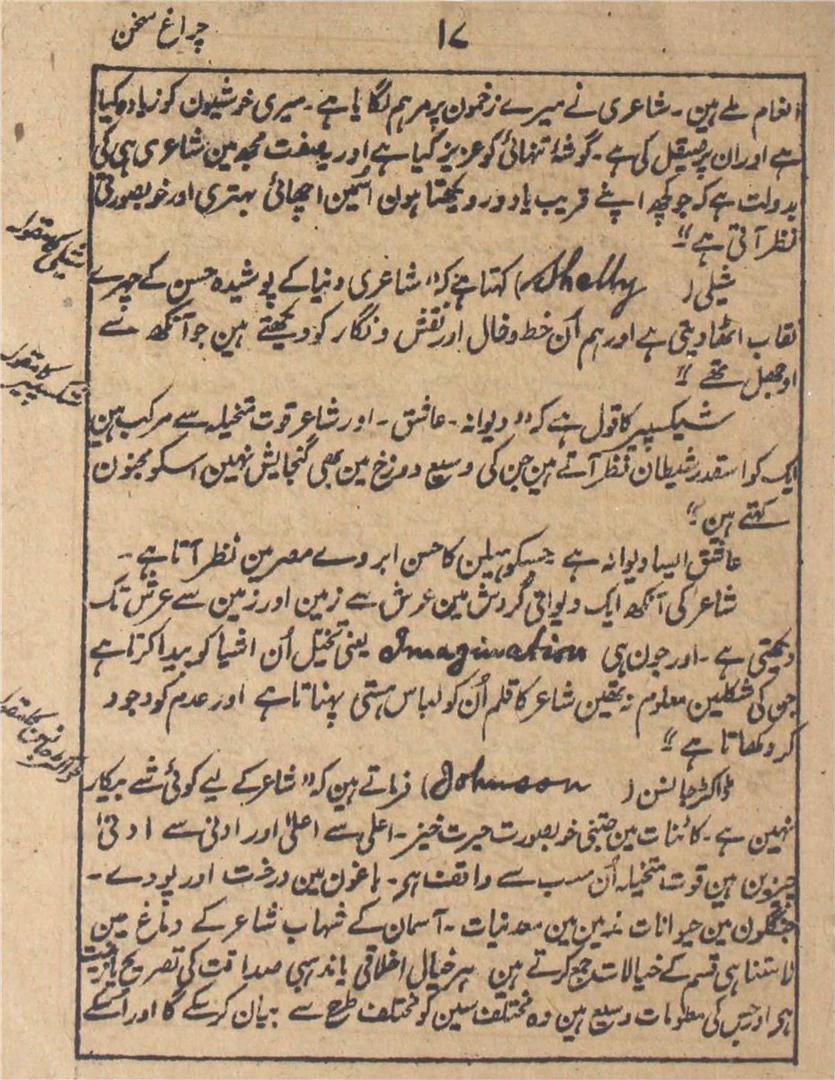 چراغ سخن
۱۷
انعام ملے ہین ۔ شاعری نے میرے زخمون پر مرہم لگایا ہے ۔ میری خوشیون کو زیادہ کیا
ہے اور ان پر صیقل کی ہے ۔ گوشۂ تنہائی کو عزیز کیا ہے اور یہ صفت مجھ مین شاعری ہی کی
بدولت ہے کہ جو کچھ اپنے قریب یا دور دیکھتا ہون اُسمین اچھائی بہتری اور خوبصورتی
نظر آتی ہے ‘‘
شیلی کا مقولہ
شیلی ( Shelly ) کہتا ہے کہ ’’ شاعری دنیا کے پوشیدہ حسن کے چہرے سے
نقاب اٹھا دیتی ہے اور ہم اُن خط و خال اور نقش و نگار کو دیکھتے ہین جو آنکھ سے
اوجھل تھے ‘‘
شکسپیر کا مقولہ
شیکسپیر کا قول ہے کہ ’’ دیوانہ ۔ عاشق ۔ اور شاعر قوت متخیلہ سے مرکب ہین
ایک کو اسقدر شیطان نظر آتے ہین جن کی وسیع دوزخ مین بھی گنجایش نہین اسکو مجنون
کہتے ہین ‘‘
عاشق ایسا دیوانہ ہے جسکو ہیلن کا حسن ابروے مصر مین نظر آتا ہے ۔
شاعر کی آنکھ ایک دیوانی گردش مین عرش سے زمین اور زمین سے عرش تک
دیکھتی ہے ۔ اور جون ہی Imagination یعنی تخیّل اُن اشیا کو پیدا کرتا ہے
جن کی شکلین معلوم نہ تھین شاعر کا قلم اُن کو لباس ہستی پہناتا ہے اور عدم کو وجود
کر دکھاتا ہے ‘‘
ڈاکٹر جانسن کا مقولہ
ڈاکٹر جانسن ( Johnson ) فرماتے ہین کہ ’’ شاعر کے لیے کوئی شے بیکار
نہین ہے ۔ کائنات مین جتنی خوبصورت حیرت خیز ۔ اعلی سے اعلیٰ اور ادنی سے ادنیٰ
چیزین ہین قوت متخیلہ اُن سب سے واقف ہو ۔ باغون مین درخت اور پودے ۔
جنگلون مین حیوانات زمین مین معدنیات ۔ آسمان کے شہاب شاعر کے دماغ مین
لا متناہی قسم کے خیالات جمع کرتے ہین ہر خیال اخلاقی یا مذہبی صداقت کی تصریح یا
ہو اور جس کی معلومات وسیع ہین وہ مختلف سین کو مختلف طرح سے بیان کر سکے گا اور اُسکے